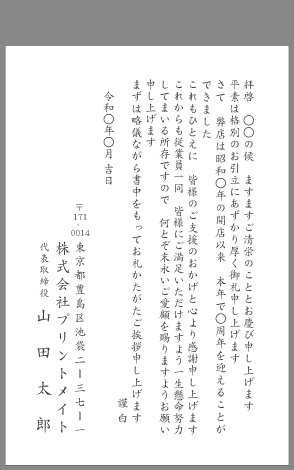 拝啓　〇〇の候　ますますご清栄のこととお慶び申し上げます
平素は格別のお引立にあずかり厚く御礼申し上げます
さて　弊店は昭和〇年の開店以来　本年で〇周年を迎えることが
できました
これもひとえに　皆様のご支援のおかげと心より感謝申し上げます
これからも従業員一同　皆様にご満足いただけますよう一生懸命努力
してまいる所存ですので　何とぞ末永いご愛顧を賜りますようお願い
申し上げます
まずは略儀ながら書中をもってお礼かたがたご挨拶申し上げます
謹白
令和〇年〇月吉日
〒171-0014
東京都豊島区池袋二ー三七ー一
株式会社プリントメイト
代表取締役　山田太郎